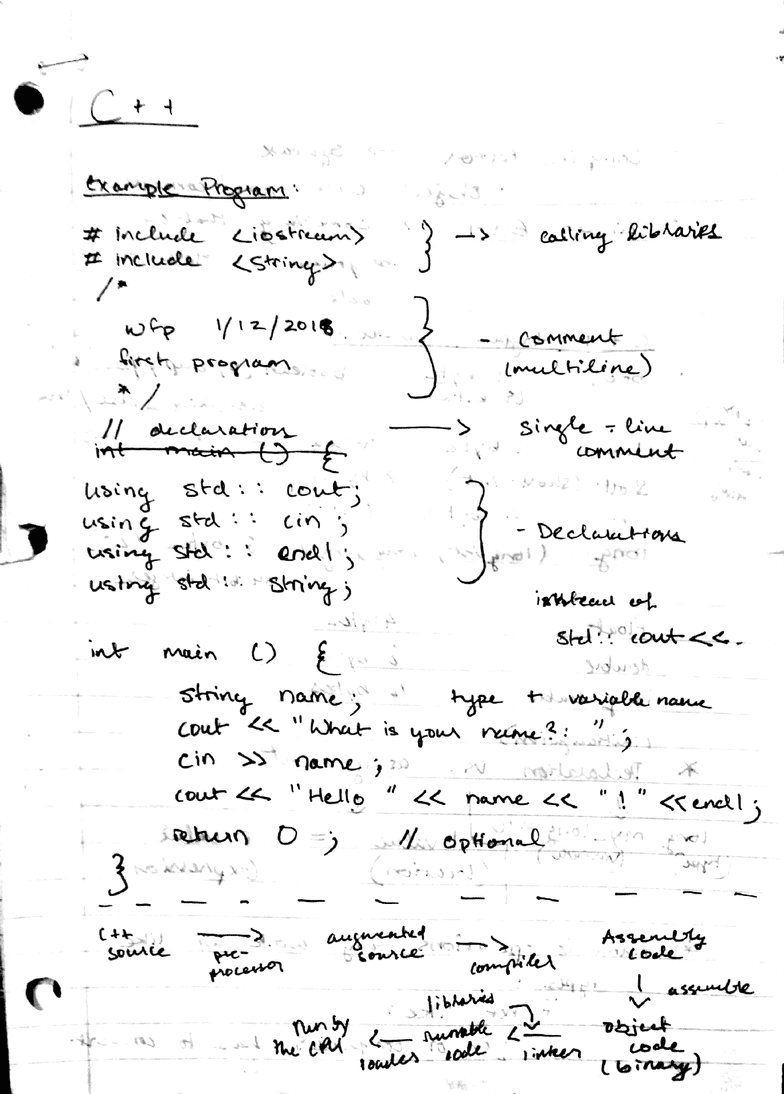 C++
Example Program:
# include <iostream> } → calling libraries
# include <string>
/*
wfp 1/12/2018 } - comment
first program (multiline)
*/
// declarations → single-line comment
int main () {
using std:: cout;
using std:: cin;
using std:: endl; } - Declarations
using std:: string;
instead of
std:: cout <<.
int main () {
string name; type + variable name
cout << "What is your name?: ";
cin >> name;
cout << "Hello " << name << "!" << endl;
return 0 ; // optional
}
C++ source → pre-processor augmented source → compiler Assembly code
↓ assemble
run by the CPU ← loader runnable code ← linker object code (binary)
libraries